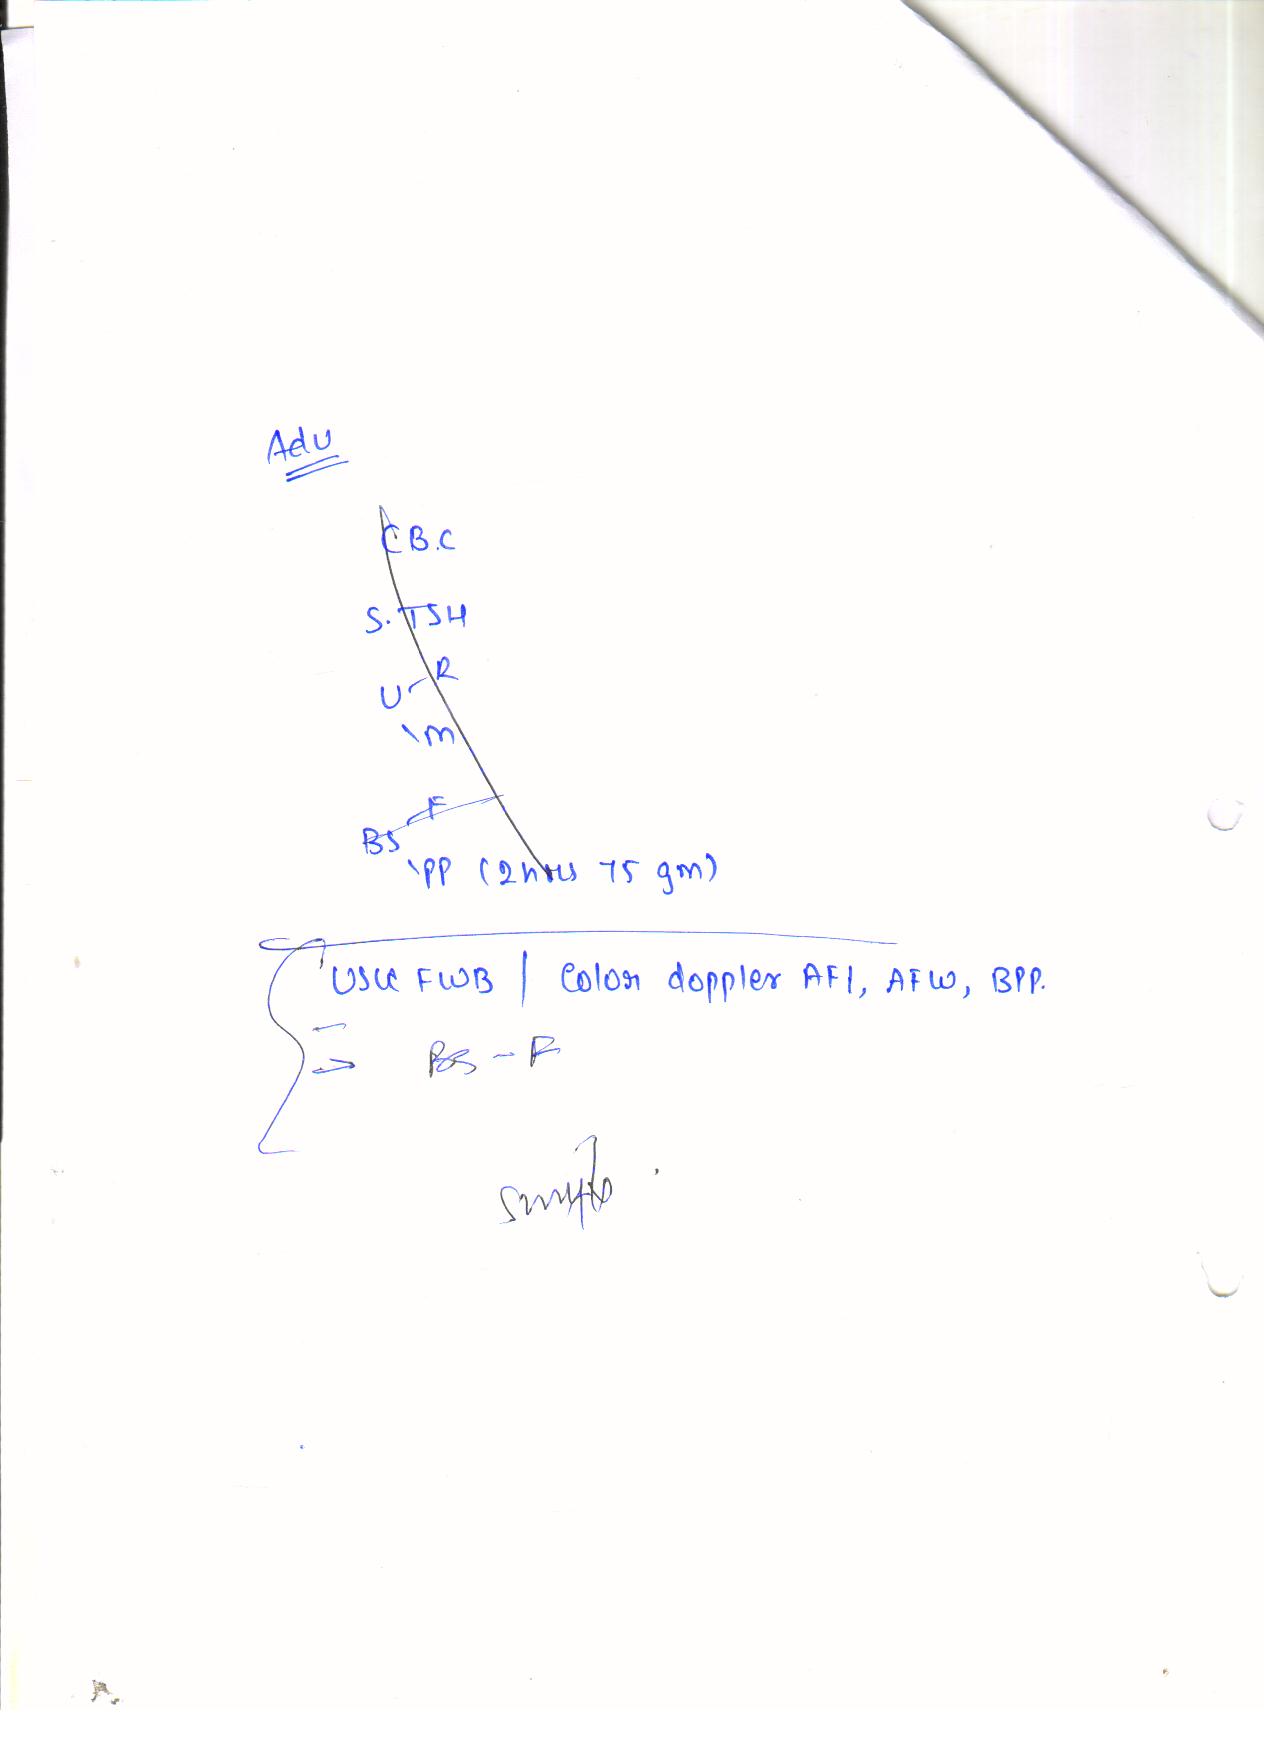 Adv
CB.C
S. TSH
U R
M
BS F
PP (2 hrs 75 gm)
USG FWB | Color doppler AFI, AFW, BPP.
BS - F